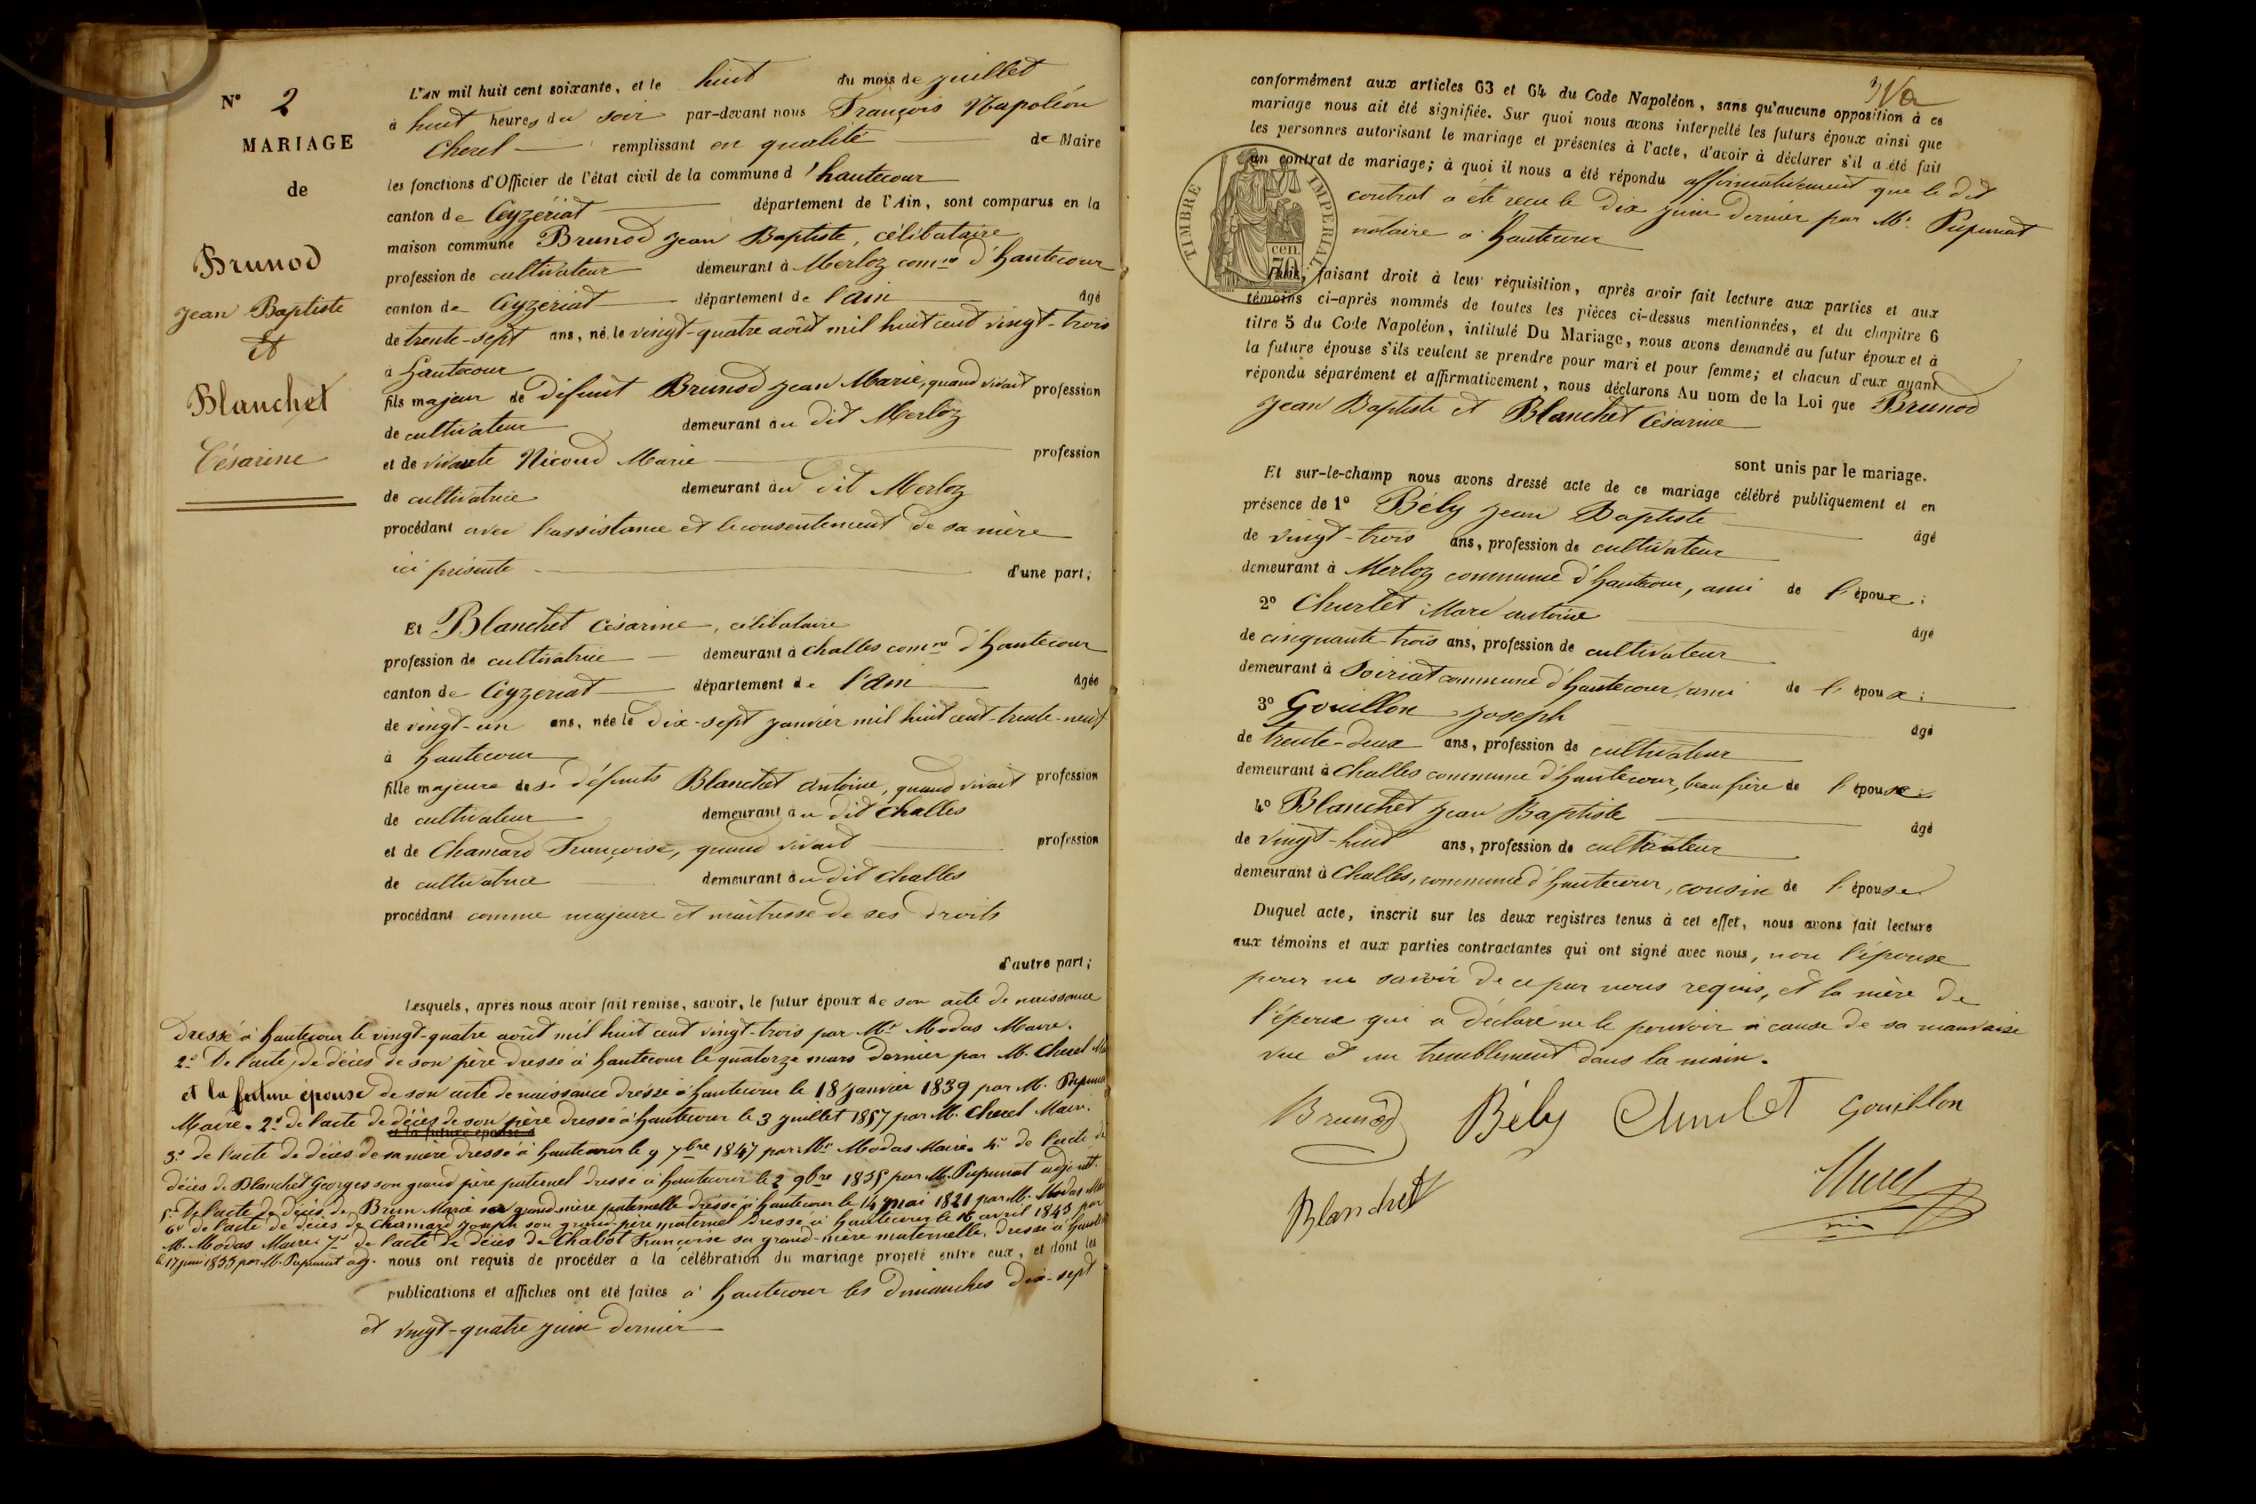 N° 2
MARIAGE
de
Brunod
Jean Baptiste
Et
Blanchet
Césarine
L'AN mil huit cent soixante, et le huit du mois de juillet
à huit heures du soir par-devant nous François Napoléon
Cherel remplissant en qualité de Maire
les fonctions d'Officier de l'état civil de la commune d'hautecour
canton de Ceyzériat département de l'Ain, sont comparus en la
maison commune Brunod Jean Baptiste, célibataire
profession de cultivateur demeurant à Merloz comne d'hautecour
canton de Ceyzeriat département de l'Ain âgé
de trente-sept ans, né le vingt-quatre août mil huit cent vingt-trois
à hautecour
fils majeur de défunt Brunod Jean Marie, quand vivait profession
de cultivateur demeurant au dit Merloz
et de vivante Nicoud Marie profession
de cultivatrice demeurant au dit Merloz
procédant avec l'assistance et le consentement de sa mère
ici présente d'une part;
Et Blanchet Césarine, célibataire
profession de cultivatrice demeurant à Challes comne d'hautecour
canton de Ceyzeriat département de l'Ain âgée
de vingt-un ans, née le dix-sept janvier mil huit cent-trente-neuf
à hautecour
fille majeure des défunts Blanchet Antoine, quand vivait profession
de cultivateur demeurant au dit Challes
et de Chamard Françoise, quand vivait profession
de cultivatrice demeurant au dit Challes
procédant comme majeure et maîtresse de ses droits
d'autre part;
Lesquels, après nous avoir fait remise, savoir, le futur époux de son acte de naissance
dressé à hautecour le vingt-quatre août mil huit cent vingt-trois par Mr Modas Maire.
2° De l'acte de décès de son père dressé à hautecour le quatorze mars dernier par M. Cherel
et la future épouse de son acte de naissance dressé à hautecour le 18 janvier 1839 par M. Pupunat
Maire. 2° de l'acte de décès de son père dressé à hautecour le 3 juillet 1857 par M. Cherel Maire.
et la future épouse
3° de l'acte de décès de sa mère dressé à hautecour le 9 7bre 1847 par Mr Modas Maire. 4° de l'acte de
décès de Blanchet Georges son grand père paternel dressé à hautecour le 2 9bre 1835 par M. Pupunat adjoint.
5° De l'acte de décès de Brun Marie sa grand-mère paternelle dressé à hautecour le 14 mai 1821 par M. Modas
6° de l'acte de décès de Chamard Joseph son grand-père maternel dressé à hautecour le 16 avril 1843 par
M. Modas Maire. 7° de l'acte de décès de Chabot Françoise sa grand-mère maternelle, dressé à
le 17 juin 1835 par M. Pupunat adj. nous ont requis de procéder à la célébration du mariage projeté entre eux, et dont les
publications et affiches ont été faites à hautecour les dimanches dix-sept
et vingt-quatre juin dernier
conformément aux articles 63 et 64 du Code Napoléon, sans qu'aucune opposition à ce
mariage nous ait été signifiée. Sur quoi nous avons interpellé les futurs époux ainsi que
les personnes autorisant le mariage et présentes à l'acte, d'avoir à déclarer s'il a été fait
un contrat de mariage; à quoi il nous a été répondu affirmativement que le dit
contrat a été reçu le dix juin dernier par Mr. Pupunat
notaire à hautecour
TIMBRE IMPERIAL
70 cen.
Puis, faisant droit à leur réquisition, après avoir fait lecture aux parties et aux
témoins ci-après nommés de toutes les pièces ci-dessus mentionnées, et du chapitre 6
titre 5 du Code Napoléon, intitulé Du Mariage, nous avons demandé au futur époux et à
la future épouse s'ils veulent se prendre pour mari et pour femme; et chacun d'eux ayant
répondu séparément et affirmativement, nous déclarons Au nom de la Loi que Brunod
Jean Baptiste et Blanchet Césarine
sont unis par le mariage.
Et sur-le-champ nous avons dressé acte de ce mariage célébré publiquement et en
présence de 1° Bély Jean Baptiste âgé
de vingt-trois ans, profession de cultivateur
demeurant à Merloz commune d'hautecour, ami de l'époux;
2° Churlet Marc antoine âgé
de cinquante-trois ans, profession de cultivateur
demeurant à Soiriat commune d'hautecour, ami de l'époux;
3° Gouillon Joseph âgé
de trente-deux ans, profession de cultivateur
demeurant à Challes commune d'hautecour, beau frère de l'épouse;
4° Blanchet Jean Baptiste âgé
de vingt-huit ans, profession de cultivateur
demeurant à Challes, commune d'hautecour, cousin de l'épouse
Duquel acte, inscrit sur les deux registres tenus à cet effet, nous avons fait lecture
aux témoins et aux parties contractantes qui ont signé avec nous, non l'épouse
pour ne savoir de ce par nous requis, et la mère de
l'époux qui a déclaré ne le pouvoir à cause de sa mauvaise
vue et un tremblement dans la main.
Brunod Bély Churlet Gouillon
Blanchet Cherel